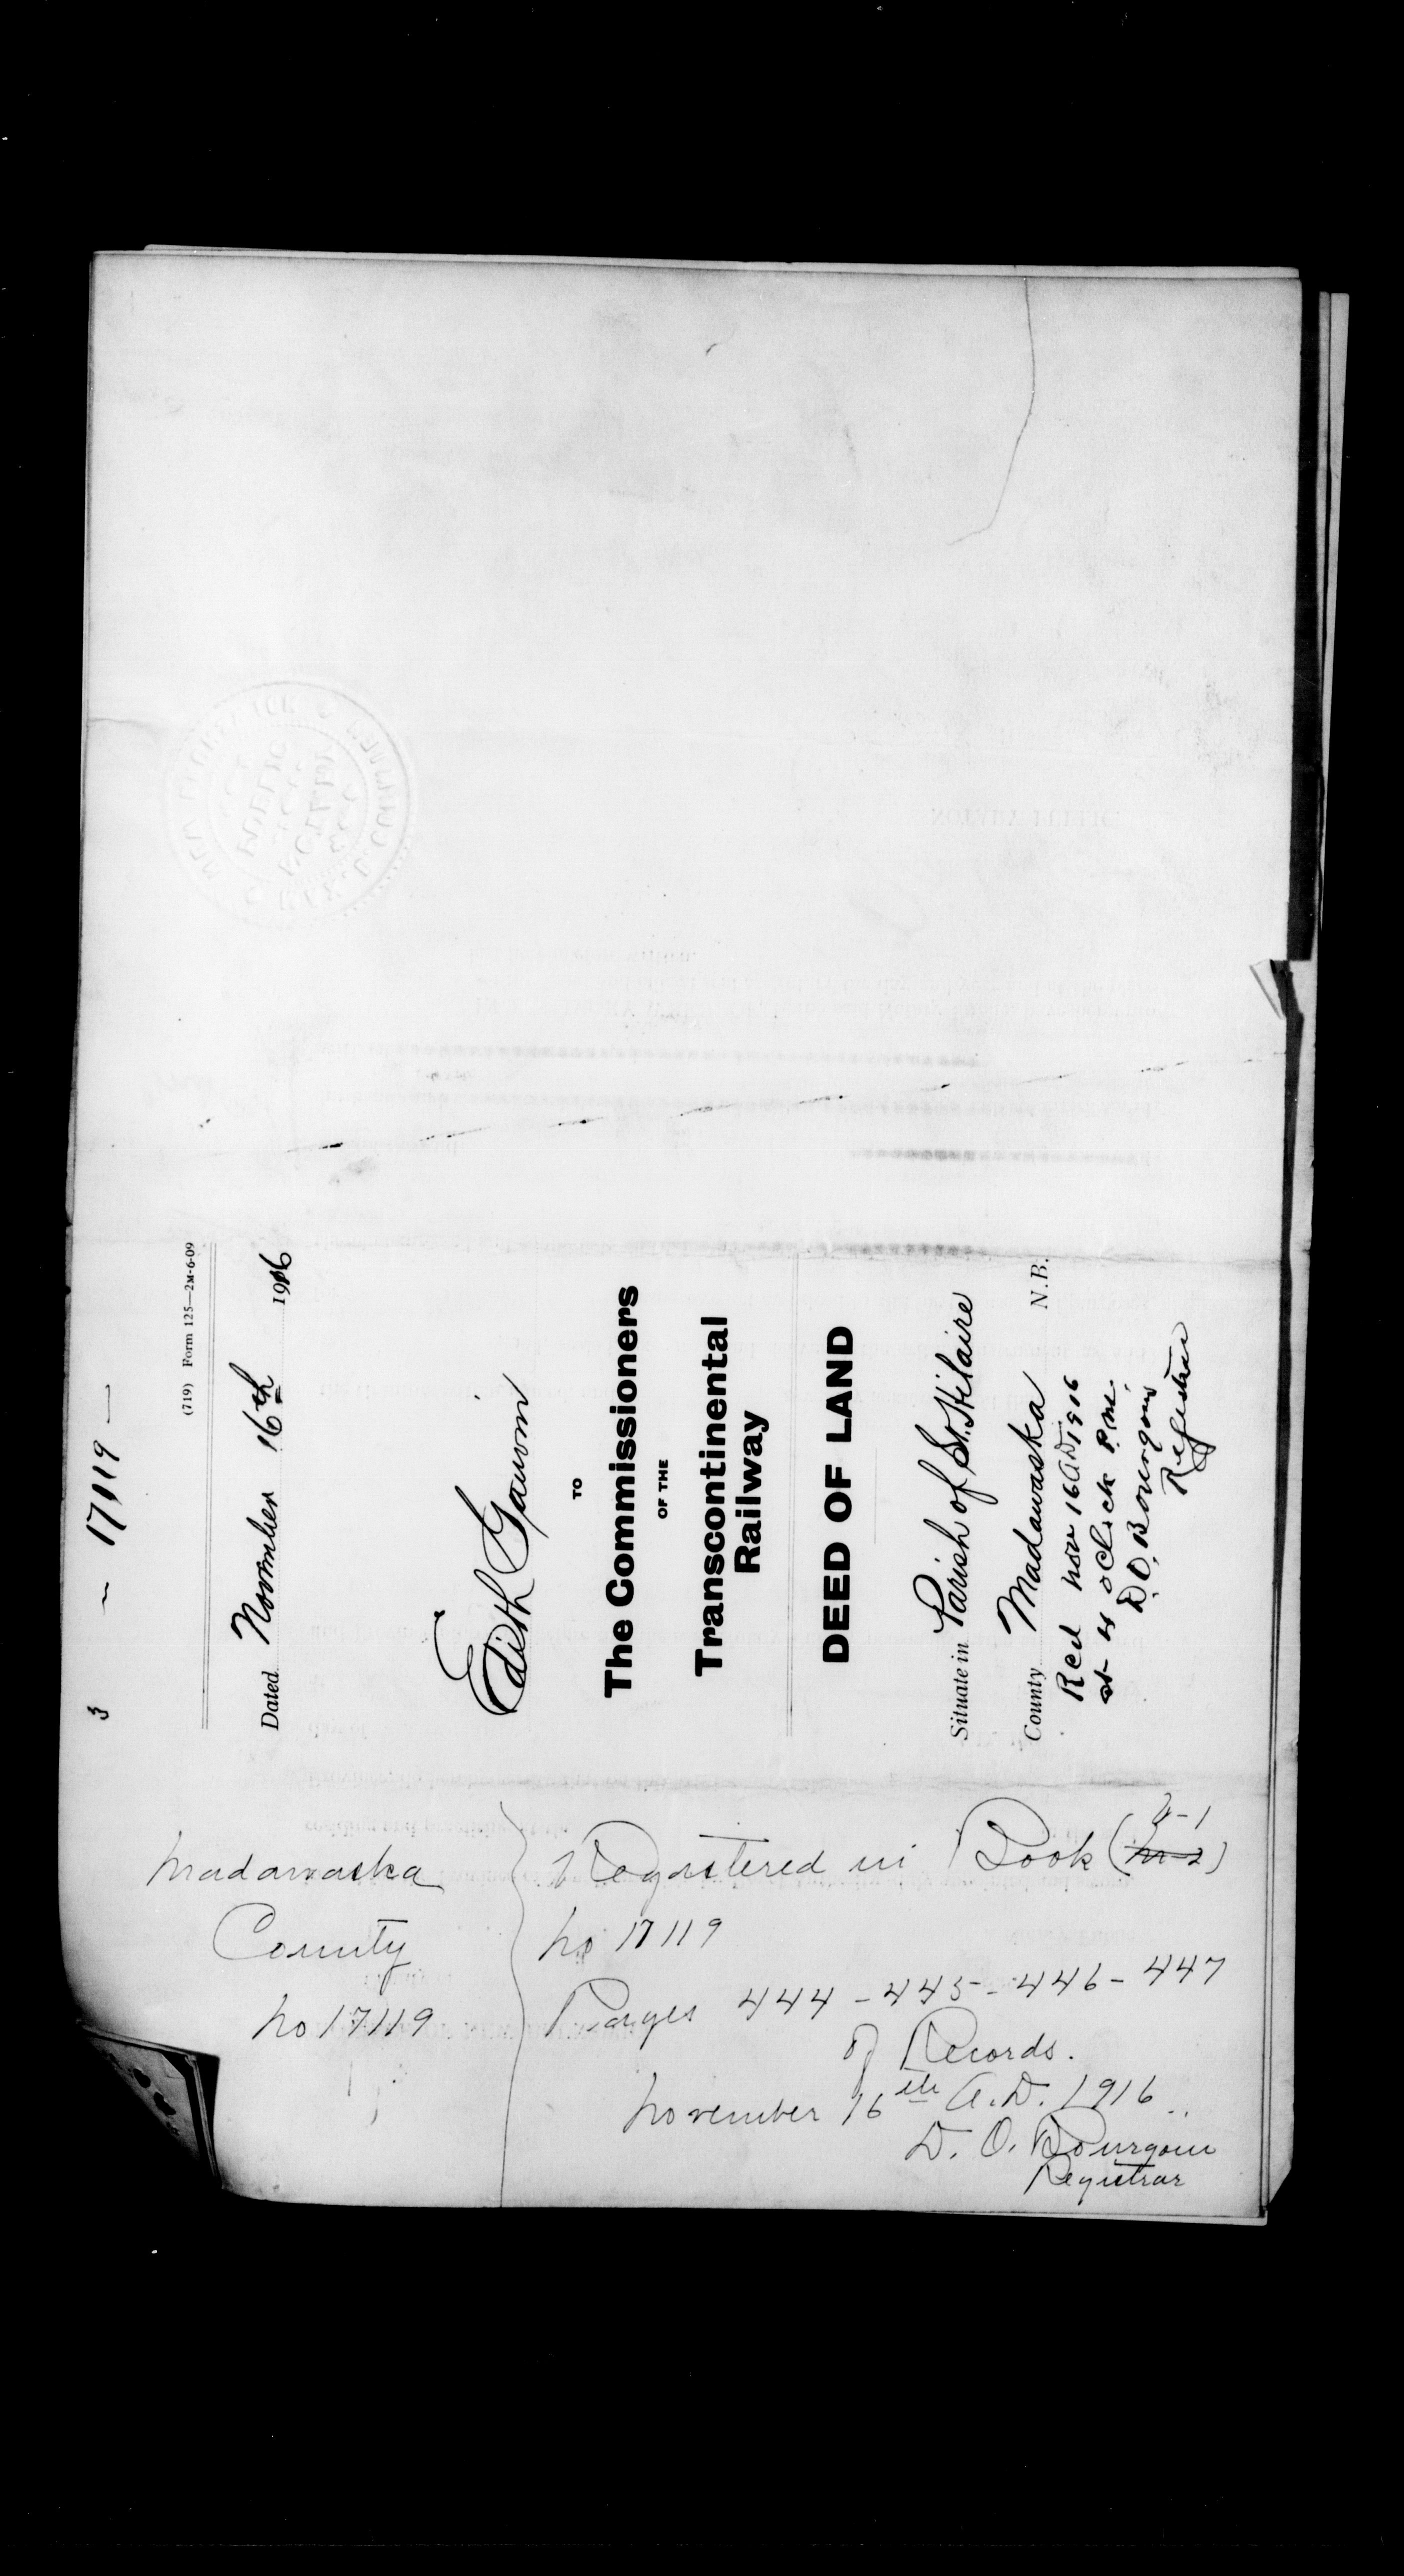 3 ~ 17119 —
(719) Form 125—2M-6-09
Dated November 16th 1916
Edith Gauvin
TO
The Commissioners
OF THE
Transcontinental
Railway
DEED OF LAND
Situate in Parish of St. Hilaire
County Madawaska N.B.
Recd Nov 16 AD 1916
at 4 oClock P.M.
D.O. Bourgoin
Registrar
Madawaska
County
No 17119
Registered in Book
No 17119
Pages 444-445-446-447
of Records.
November 16th A.D. 1916
D. O. Bourgoin
Registrar